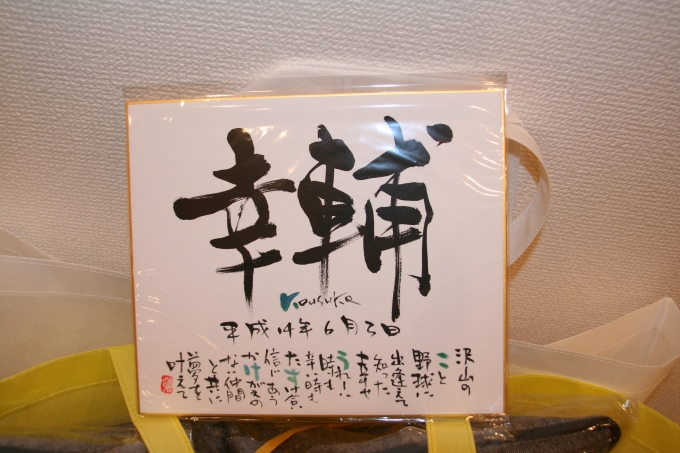 幸輔
Kousuke
平成14年6月3日
沢山の
こと
野球に
出逢えて
知った
うれしい
時も
辛い時も
たすけ合い
信じあう
かけがえの
ない仲間
と共に
夢を
叶えて